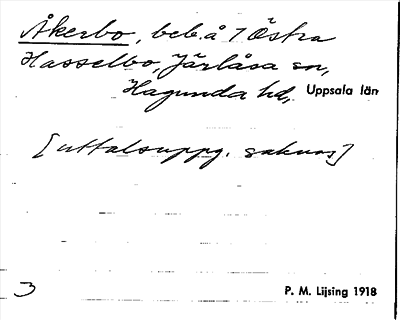 Åkerbo, beb. å 1 Östra
Hasselbo, Järlåsa sn,
Hagunda hd, Uppsala län
[uttalsuppg. saknas]
3
P. M. Lijsing 1918